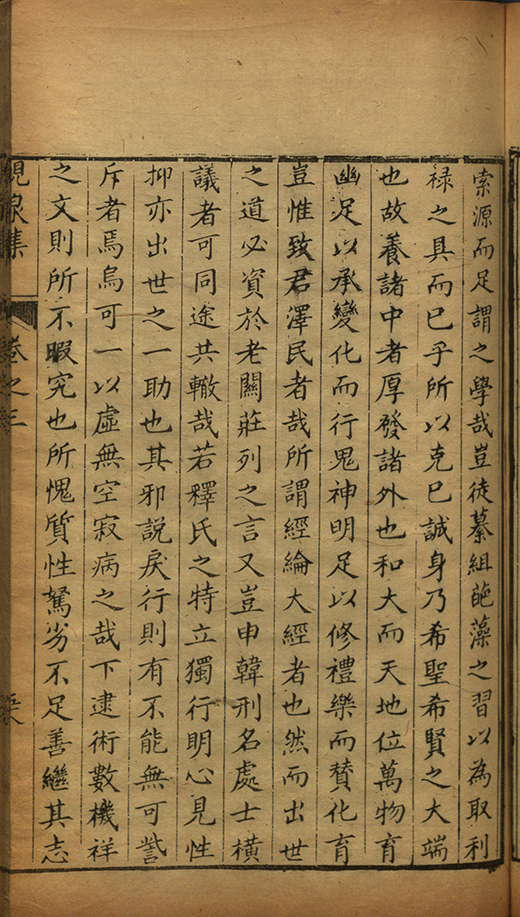 索源而足謂之學哉豈徒綦組葩藻之習以為取利
祿之具而已乎所以克己誠身乃希聖希賢之大端
也故養諸中者厚發諸外也和大而天地位萬物育
幽足以承變化而行鬼神明足以修禮樂而賛化育
豈惟致君澤民者哉所謂經綸大經者也然而出世
之道必資於老關莊列之言又豈申韓刑名處士橫
議者可同途共轍哉若釋氏之特立獨行明心見性
抑亦出世之一助也其邪說戾行則有不能無可訾
斥者焉烏可一以虛無空寂病之哉下逮術數機祥
之文則所不暇究也所愧質性駑劣不足善繼其志
峴泉集 卷之三